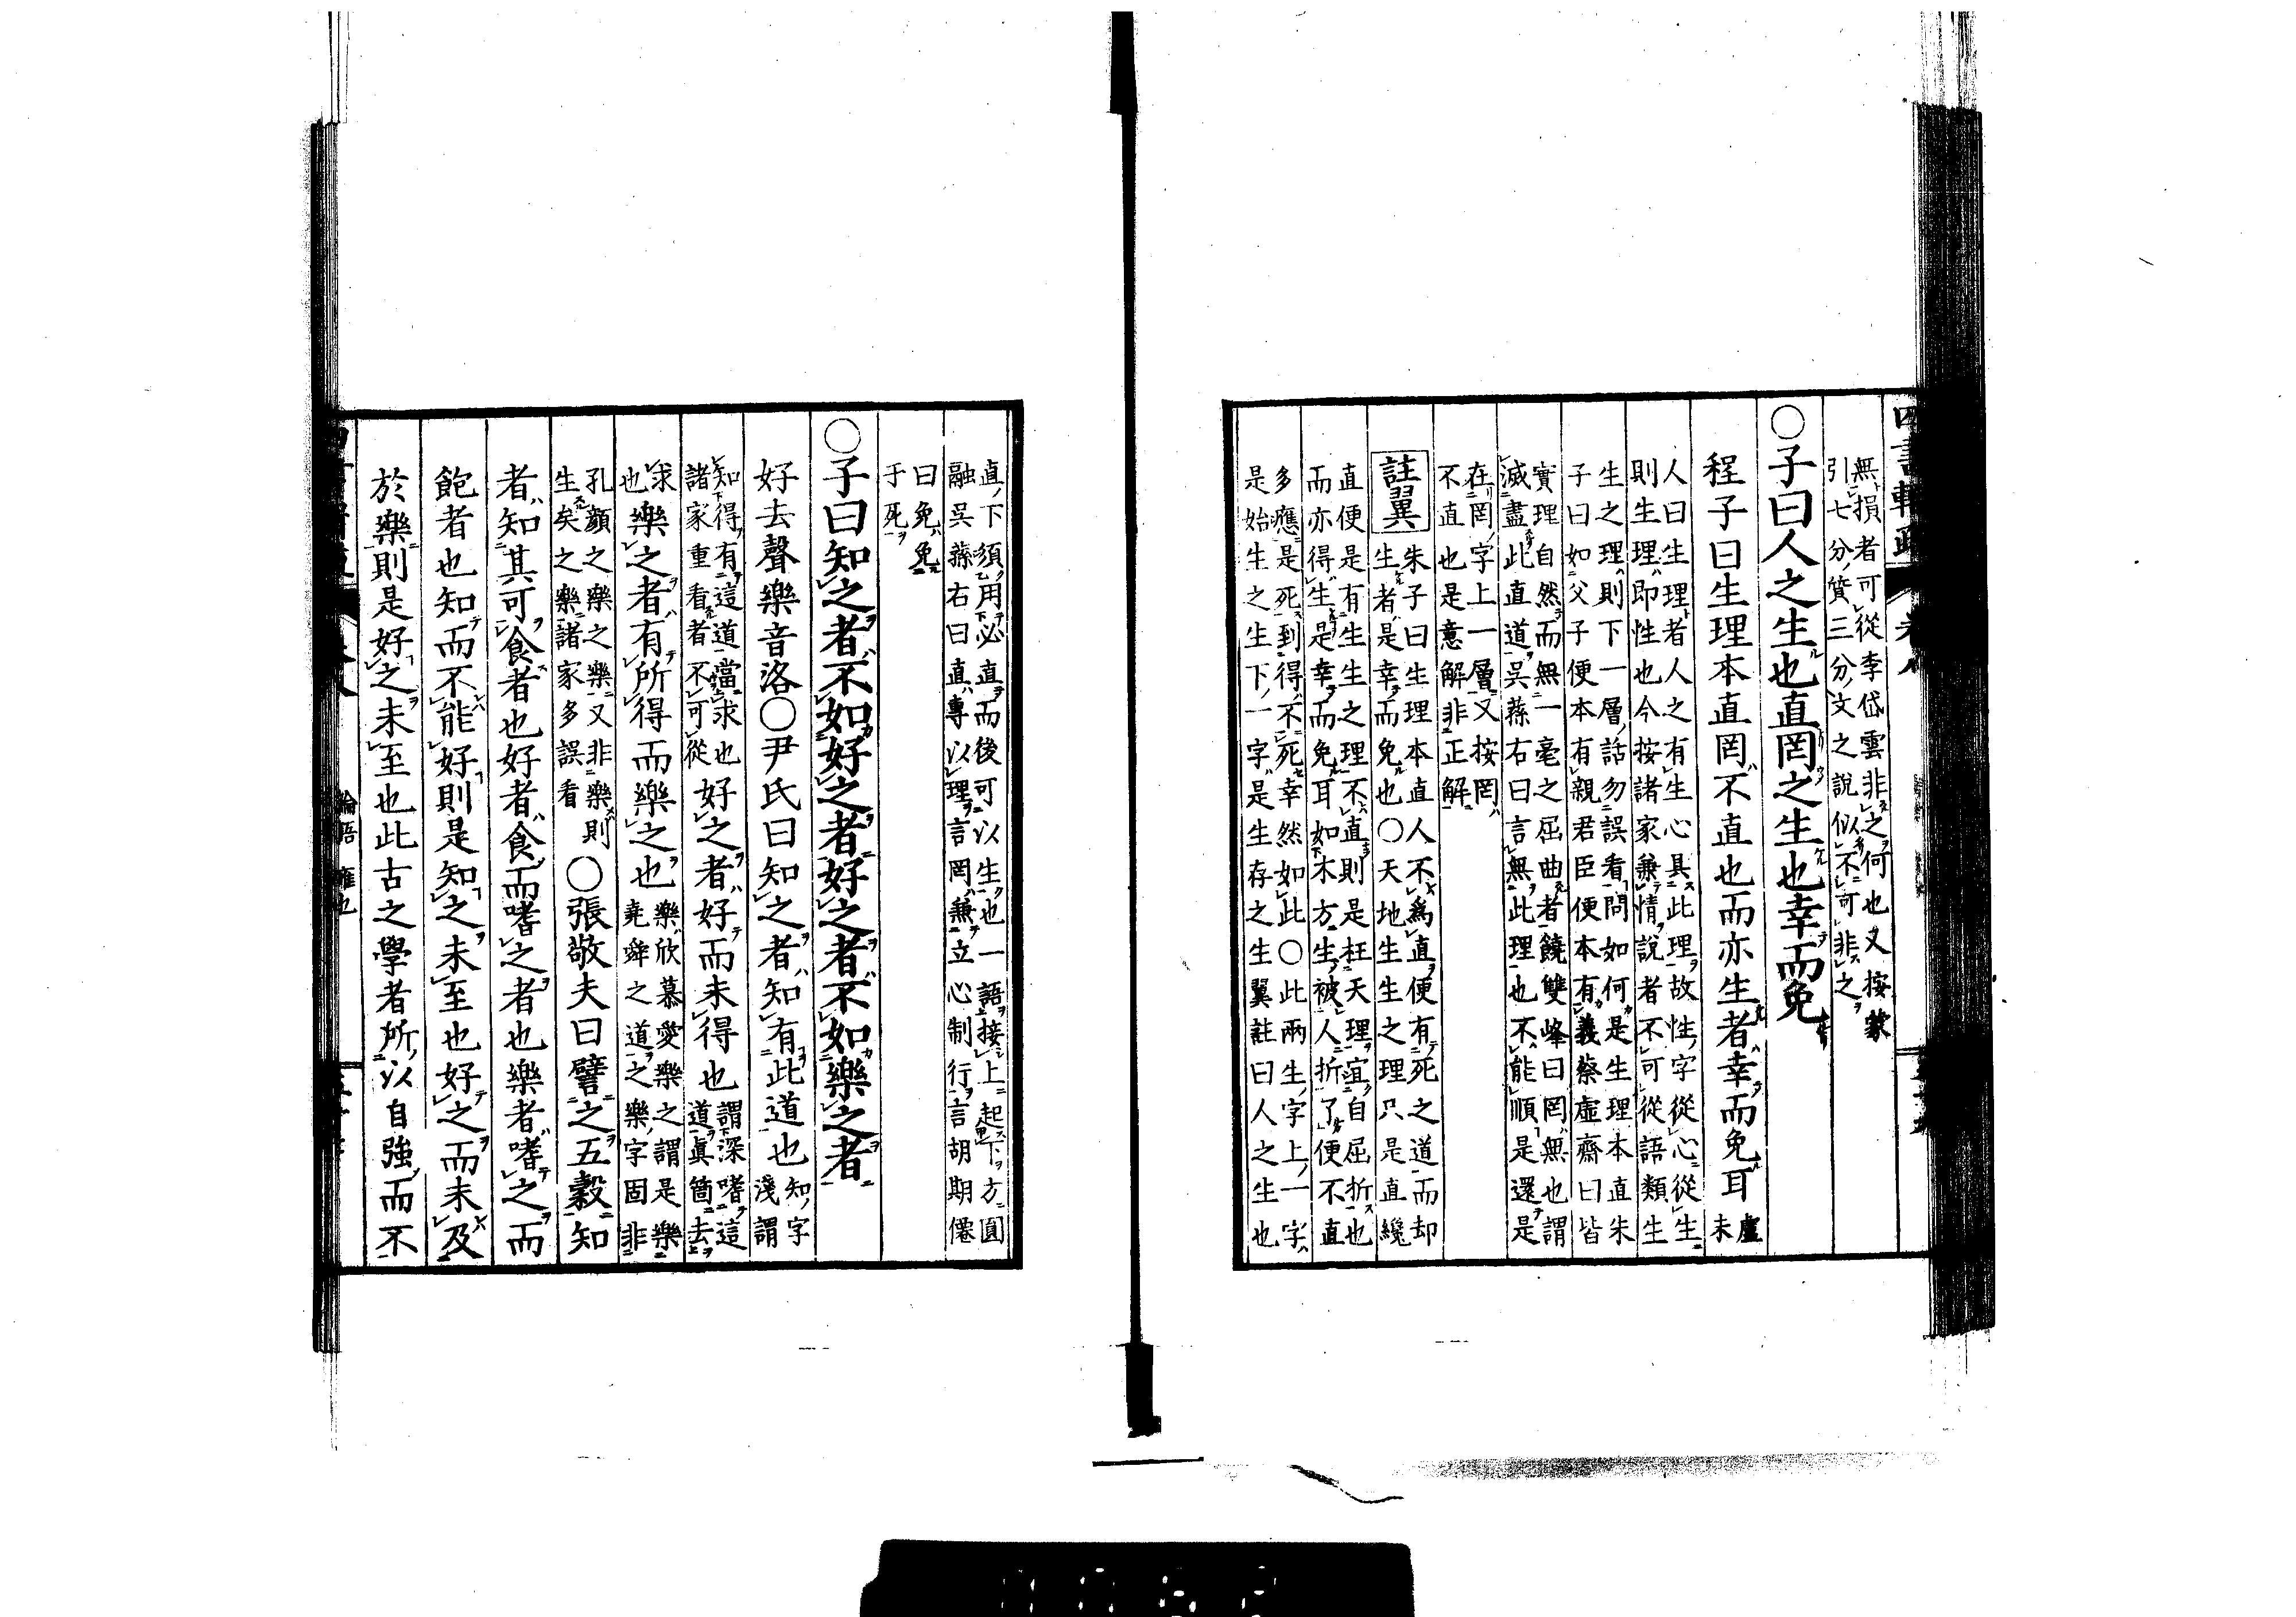 無損者可從李岱雲非之何也又按蒙
引七分質三分文之說似不可非之
○子曰人之生也直罔之生也幸而免
程子曰生理本直罔不直也而亦生者幸而免耳盧未
人曰生理者人之有生心具此理故性字從心從生
則生理即性也今按諸家兼情說者不可從語類生
生之理則下一層話勿誤看問如何是生理本直朱
子曰如父子便本有親君臣便本有義蔡虛齋曰皆
實理自然而無一毫之屈曲者饒雙峰曰罔無也謂
滅盡此直道吳蓀右曰言無此理也不能順是還是
在罔字上一層又按罔
不直也是意解非正解
註翼
朱子曰生理本直人不為直便有死之道而却
生者是幸而免也○天地生生之理只是直纔
直便是有生生之理不直則是枉天理宜自屈折也
而亦得生是幸而免耳如木方生被人折了便不直
多應是死到得不死幸然如此○此兩生字上一字
是始生之生下一字是生存之生翼註曰人之生也
直下須用必直而後可以生也一語接上起下方圓
融吳蓀右曰直專以理言罔兼立心制行言胡期僊
曰免免
于死
○子曰知之者不如好之者好之者不如樂之者
好去聲樂音洛○尹氏曰知之者知有此道也知字淺謂
知得有這道當求也
諸家重看者不可從
好之者好而未得也謂深嗜這道眞箇去
求
也
樂之者有所得而樂之也樂欣慕愛樂之謂是樂堯舜之道之樂字固非
孔顏之樂之樂又非樂則
生矣之樂諸家多誤看
○張敬夫曰譬之五穀知
者知其可食者也好者食而嗜之者也樂者嗜之而
飽者也知而不能好則是知之未至也好之而未及
於樂則是好之未至也此古之學者所以自強而不
論語 雍也